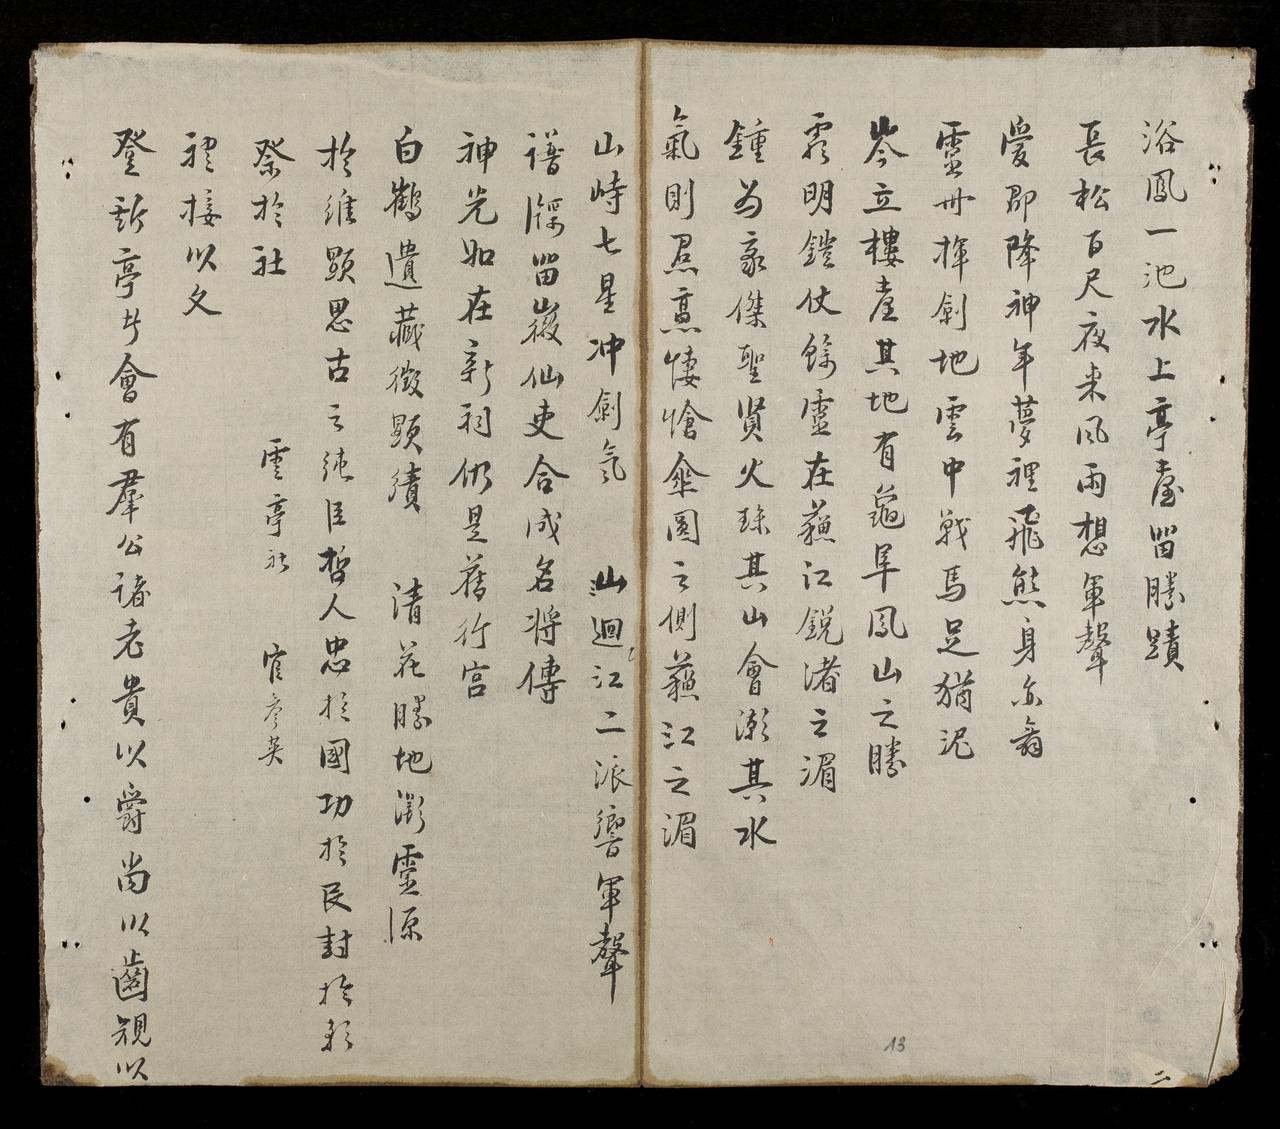 浴鳳一池水上亭臺留勝蹟
長松百尺夜來風雨想軍聲
愛郡降神年夢裡飛熊身亦翁
靈冊揮劍地雲中戰馬足猶泥
岑立樓臺其地有龜阜鳳山之勝
明鎧仗餘靈在蘓江銳渚之湄
鍾為豪傑聖賢火珠其山會潮其水
氣則焄悽愴傘圓之側蘓江之湄
山峙七星冲劍氣 山迴江二派響軍聲
譜牒留嚴仙吏合成名将傳
神光如在新祠仍是舊行宮
白鶴遺藏徵顯績 清花勝地衍靈源
於維顯思古之純臣哲人忠於國功於民封於
祭於社 雲亭社
禮接以文
登斯亭者會有羣公諸老貴以爵尚以齒親以
13
二